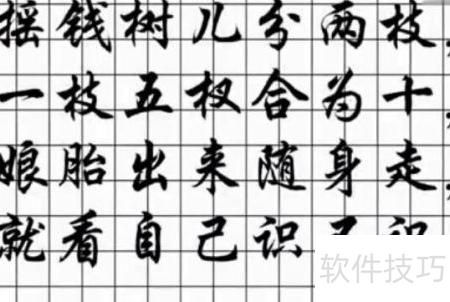 摇钱树儿分两枝,
一枝五杈合为十,
娘胎出来随身走,
就看自己识不识
软件技巧